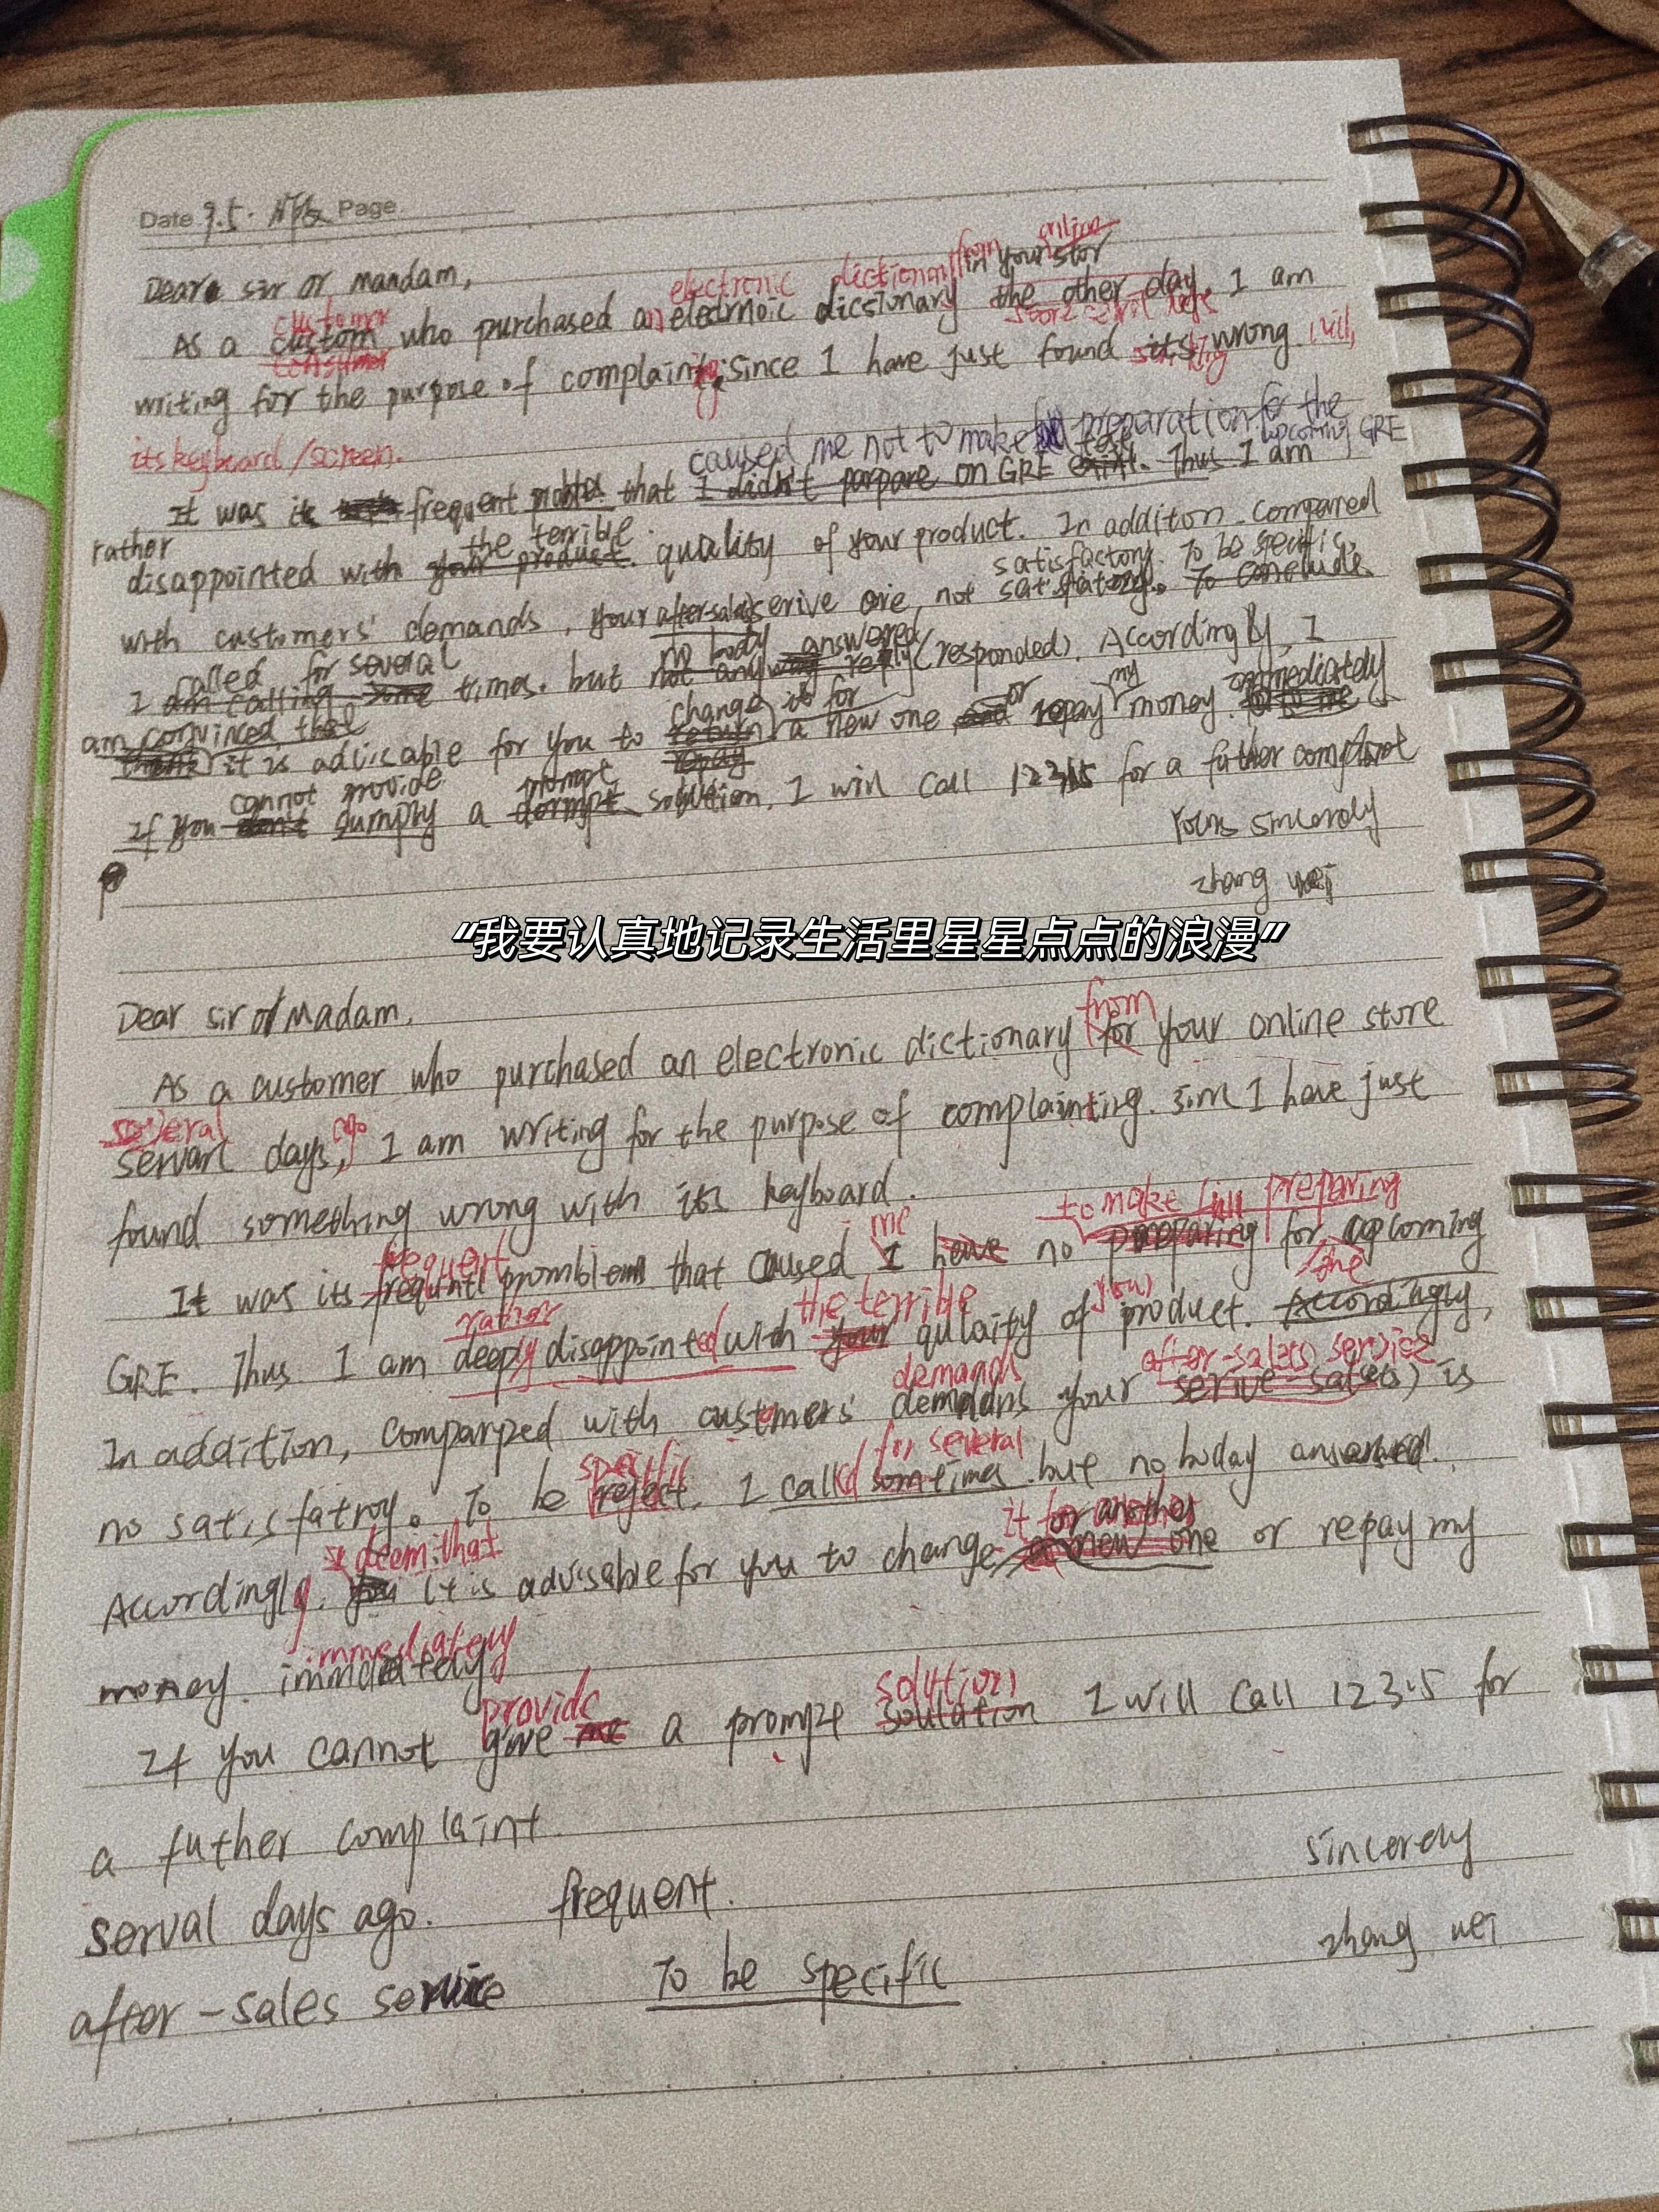 Date 9.5. Page
electronic dictionary from online
Dear sir or mandam, in your stor
customer
As a custom who purchased an dicsionary the other day. I am
consumer store several days
writing for the purpose of complainting. since I have just found its wrong with
something
its keyboard/screen.
caused me not to make full preparation for the
test upcoming GRE
It was its frequent that I didn't parpare on GRE exam. Thus I am
rather the terrible
disappointed with your product. quality of your product. In additon. compared
satisfactory. To be specific,
with customers' demands, your aftersales serive are not To conclude
called for several no body answered
I am calling some times. but not any reply (responded). Accordingly, I
am convinced that change it for or my immediately
think it is advicable for you to return a new one and repay money. to me
repay
cannot provide prompt
If you don't sumply a solution. I will call 12315 for a futher complaint
Yours sincerely
zhang wei
“我要认真地记录生活里星星点点的浪漫”
Dear sir or Madam,
from
As a customer who purchased an electronic dictionary for your online store
several ago
servarl days, I am writing for the purpose of complainting. since I have just
found something wrong with its keyboard.
me to make full preparing
frequent
It was its promblem that caused I have no preparing for upcoming
rather the terrible your the
GRE. Thus I am deeply disappointed with your qulaity of product. Accordingly,
demands after-sales service
In addition, comparped with customers' your serive-sales) is
specific for several
no satisfatroy. To be reject, I called sometimes. but no boday answered.
I deem that it for another
Accordingly, you it is advisable for you to change a new one or repay my
immediately
money.
provide solution
If you cannot give me a soulation I will call 12315 for
a futher complaint.
sincerely
serval days ago. frequent.
zhang wei
after-sales service To be specific